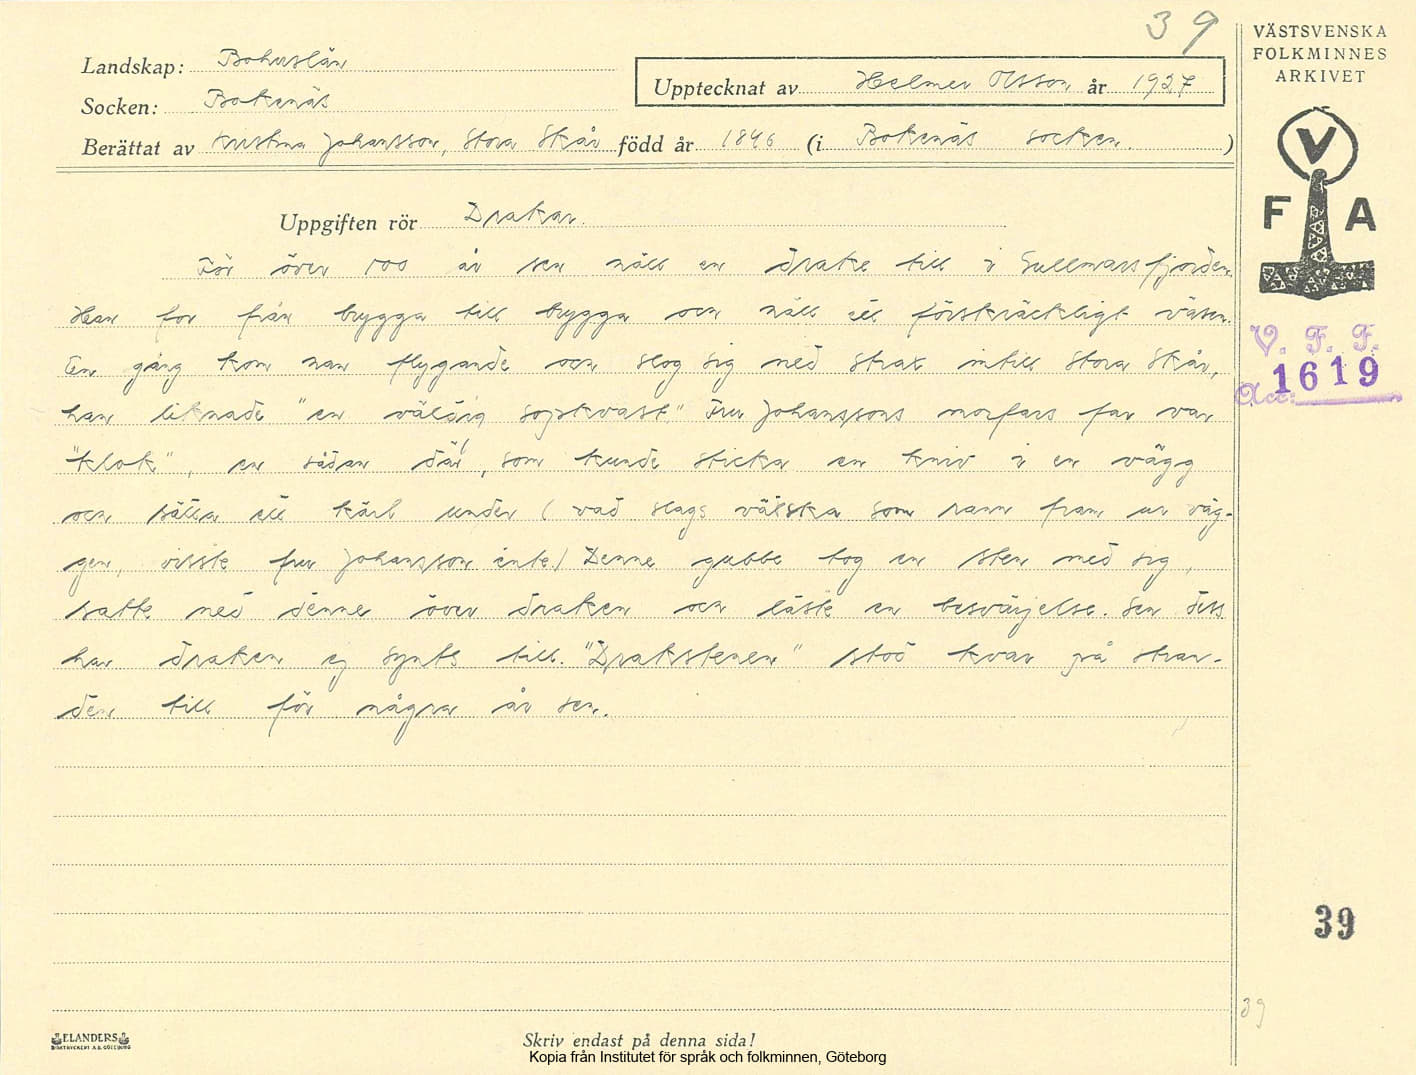 39
VÄSTSVENSKA
FOLKMINNES
ARKIVET
Landskap: Bohuslän
Upptecknat av Helmer Olsson år 1927
Socken: Bokenäs
Berättat av Kristina Johansson, Stora Skår född år 1846 (i Bokenäs socken.)
V
F A
Uppgiften rör Drakar.
För över 100 år sen höll en drake till i Gullmarsfjorden.
Han for från brygga till brygga och höll ett förskräckligt väsen.
En gång kom han flygande och slog sig ned strax intill Stora Skår,
han liknade "en väldig sopkvast". Fru Johanssons morfars far var
"klok", en sådan där, som kunde sticka en kniv i en vägg
och ställa ett kärl under (vad slags vätska som rann fram ur väg-
gen, visste fru Johansson inte) Denne gubbe tog en sten med sig,
satte ned denne över draken och läste en besvärjelse. Sen dess
har draken ej synts till. "Drakstenen" stod kvar på stran-
den till för några år sen.
V. F. F.
Acc: 1619
39
39
ELANDERS
BOKTRYCKERI A.B. GÖTEBORG
Skriv endast på denna sida!
Kopia från Institutet för språk och folkminnen, Göteborg